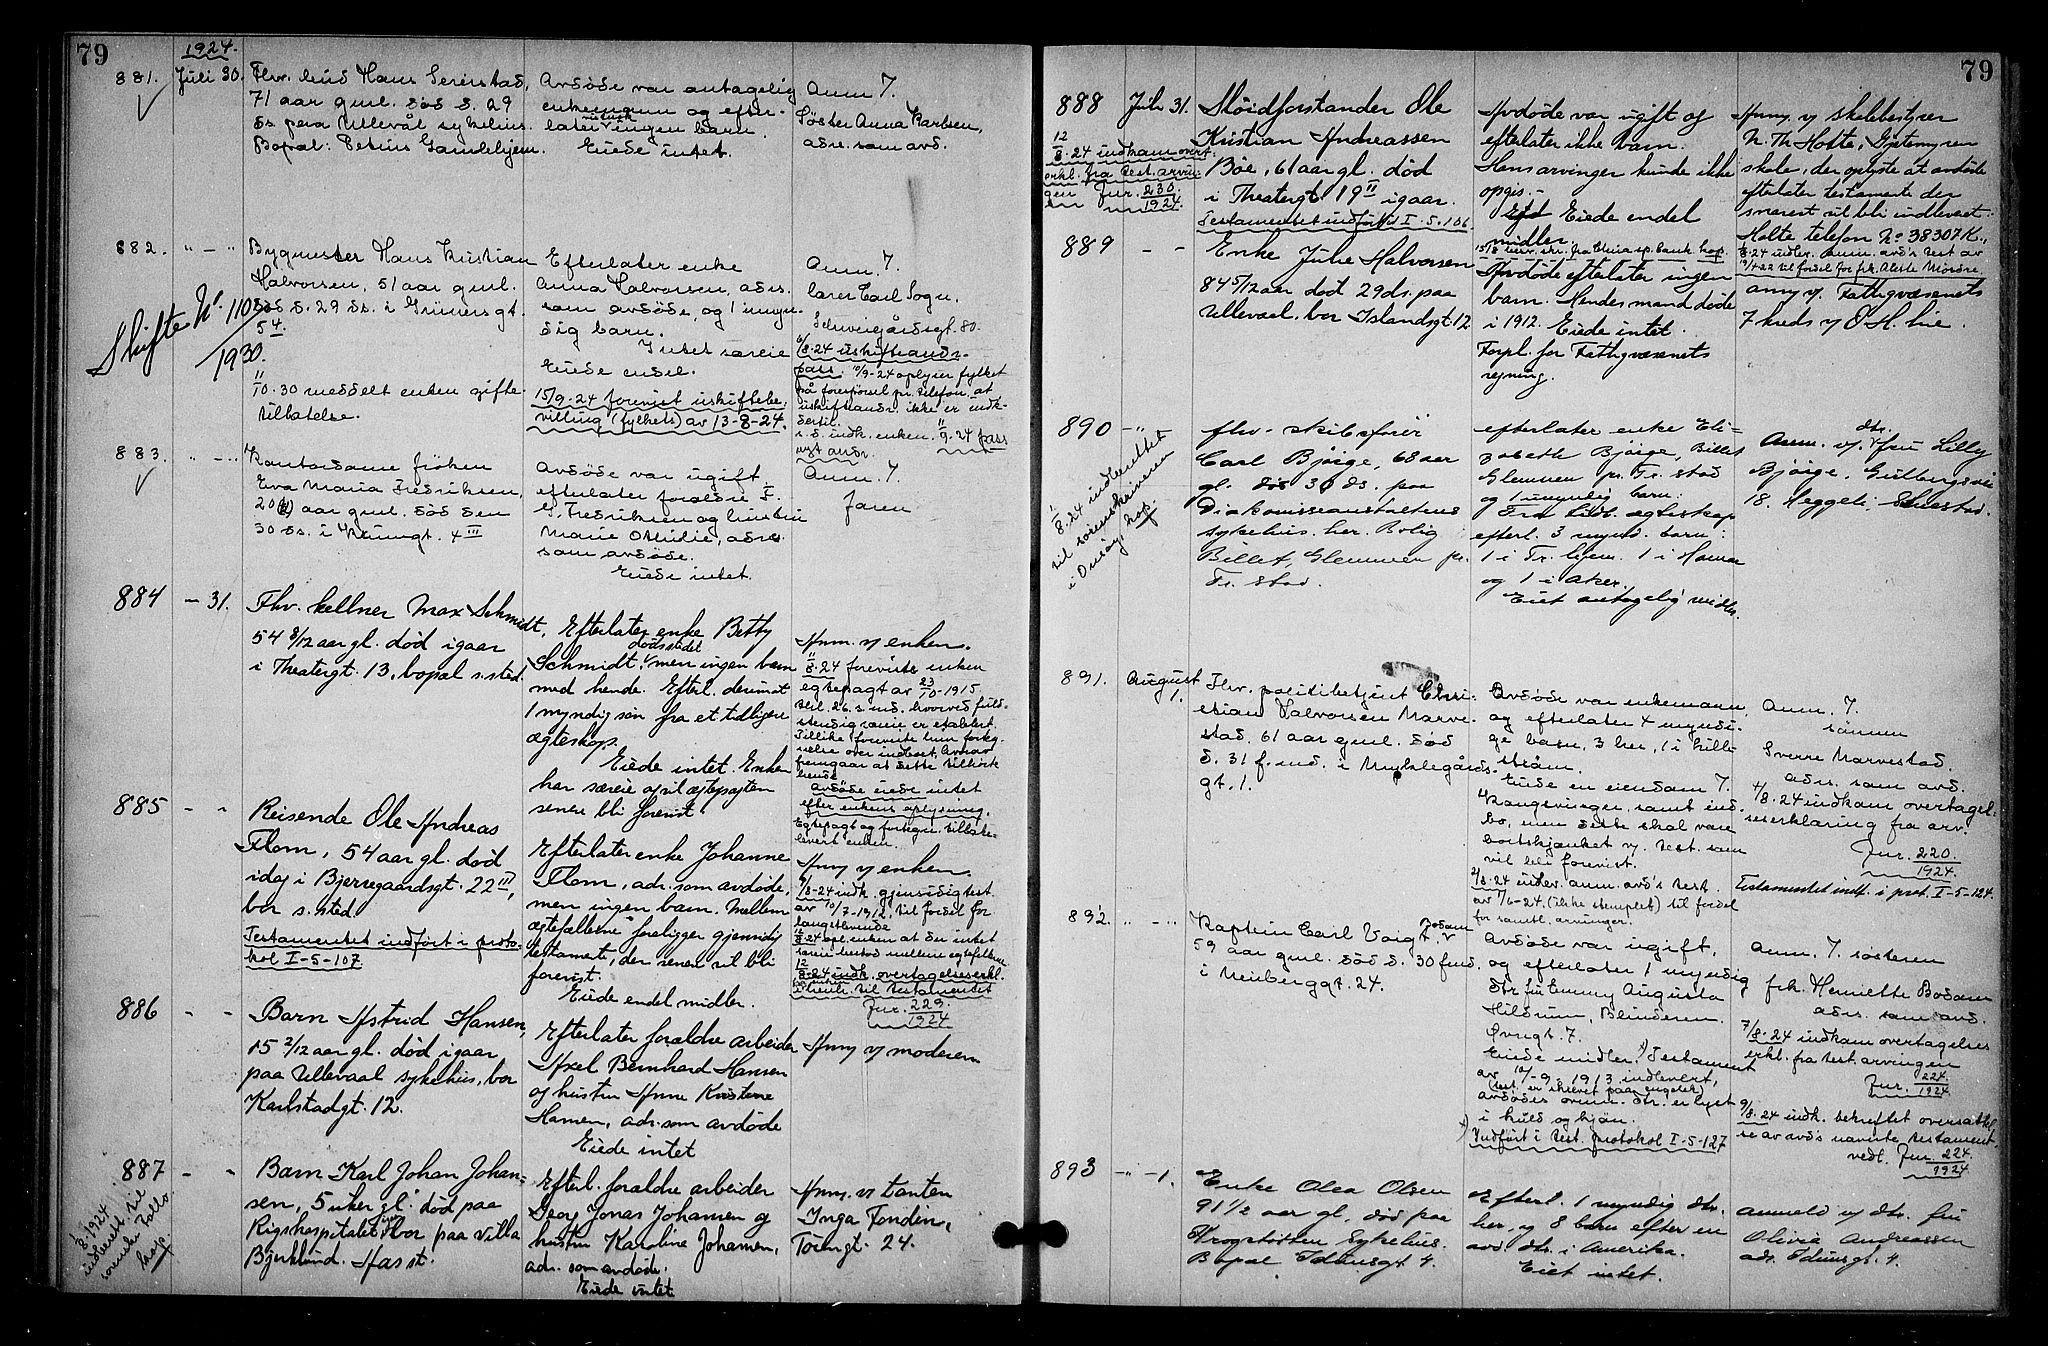 79
1924.
881. Juli 30.
Fhv. bud Hans Seierstad,
71 aar gml. død d. 29
ds. paa Ullevål sykehus.
Bopæl: Petrus Gamlehjem.
Avdøde var antagelig
enkemann og efter-
later ingen barn.
Eiede intet.
Anm. v.
Søster Anna Karlsen,
adr. som avd.
882. " — "
Bygmester Hans Kristian
Halvorsen, 51 aar gml.
død d. 29 ds. i Grünersgt.
54.
Skifte No. 110
1930.
11/10-30 meddelt enken gifte
tillatelse.
Efterlater enke
Anna Halvorsen, adr.
som avdøde, og 1 umyn-
dig barn.
Intet særeie
Eiede endel.
15/9-24 forevist uskiftebe-
villing (fylkets) av 13-8-24.
Anm. v.
lærer Carl Sogn,
Schweigårdsgt. 80.
6/8-24 uskifteandr.
pass. 10/9-24 oplyser fylket
på forespørsel pr. telefon at
uskifteandr. ikke er indk.
dertil.
s. d. indk. enken. 11/9-24 pass
nyt andr.
883. " — "
Kontordame frøken
Eva Maria Fredriksen,
20 aar gml. død den
30 ds. i Krumgt. 4 III
Avdøde var ugift,
efterlater forældre F.
G. Fredriksen og hustru
Marie Othilie, adr.
som avdøde.
Eiede intet.
Anm. v.
faren
884 — 31.
Fhv. kellner Max Schmidt,
54 8/12 aar gl. død igaar
i Theatergt. 13, bopæl s. sted.
Efterlater enke Betty
Schmidt, dødsstedet men ingen barn
med hende. Efterl. derimot
1 myndig søn fra et tidligere
ægteskap.
Eiede intet. Enken
har særeie og vil ægtepagten
senere bli forevist.
Anm. v/ enken.
11/8-24 foreviste enken
egtepagt av 23/10-1915
tillike foreviste hun forteg-
nelse over indboet. Avdøde
fremgaar at dette tilhører
hende
Avdøde eiede intet
efter enkens oplysning.
Egtepagt og fortegn. tilbake-
levert enken.
885 — "
Reisende Ole Andreas
Flom, 54 aar gl. død
idag i Bjerregaardsgt. 22 III,
bor s. sted
Testamentet indført i proto-
kol I-5-107
Efterlater enke Johanne
Flom, adr. som avdøde,
men ingen barn. Mellem
ægtefællerne foreligger gjensidig
testamente, der senere vil bli
forevist.
Eiede endel midler.
Anm. v/ enken.
9/8-24 indk. gjensidig test.
av 10/7-1912, til fordel for
længstlevende
opl. enken at der intet
særeie bestod mellem egtefellerne
12/8-24 indk. overtagelseserkl.
i henh. til testamentet
Jur. 229
1924
886 - -
Barn Astrid Hansen,
15 2/12 aar gl. død igaar
paa Ullevaal sykehus, bor
Karlstadgt. 12.
Efterlater forældre arbeider
Axel Bernhard Hansen
og hustru Anne Kristine
Hansen, adr. som avdøde
Eiede intet
Anm. v/ moderen
887 - -
Barn Karl Johan Johan-
sen, 5 uker gl. død paa
Rigshospitalet igaar bor paa villa
Bjerklund. Aas st.
1/8-1924
indberett. til
sorenskr. Follo.
kop.
Efterl. forældre arbeider
Georg Jonas Johansen og
hustru Karoline Johansen,
adr. som avdøde.
Eiede intet
Anm. v/ tanten
Inga Fondin,
Tøiengt. 24.
79
888 Juli 31.
12/8-24 indkom overt.
erkl. fra test. arvin-
gen Jur. 230.
1924.
Sløidforstander Ole
Kristian Andreassen
Bøe, 61 aar gl. død
i Theatergt. 19 II igaar.
Testamentet indført I-5-106
Avdøde var ugift og
efterlater ikke barn.
Hans arvinger kunde ikke
opgis.-
Eiede endel
midler.
Anm. v/ skolebestyrer
N. Th. Holte, Sætermyren
skole, der oplyste at avdøde
efterlater testamente der
snarest vil bli indlevert.-
Holte telefon No 38307 K.,
8-24 indlev. anm. avd's test av
til fordel for frk. Aleste Morsre.
889 - -
Enke Julie Halvorsen
84 5/12 aar død 29 ds. paa
Ullevaal. bor Islandsgt. 12
Avdøde efterlater ingen
barn. Hendes mand døde
i 1912. Eiede intet.
Forpl. for Fattigvæsenets
regning.
anm v/. Fattigvæsenets
7 kreds v/ O. H. Lie.
890 - "
1/8-24 indberettet
til sorenskriveren
i Onsøy,
kop.
fhv. skibsfører
Carl Bjørge, 68 aar
gl. død 30 ds. paa
Diakonisseanstaltens
sykehus. her. Bolig
Billet, Glemmen pr.
Fr. stad.
efterlater enke Eli-
zabeth Bjørge, Billet
Glemmen pr. Fr. stad
og 1 umyndig barn.
Fra tidl. ægteskap
efterl. 3 mynd. barn:
1 i Fr. hjem. 1 i Hamar
og 1 i Aker.
Eiet antagelig midler.
Anm. v/. dtr. fru Lilly
Bjørge, Gulbergsvei
18. Heggeli, Smestad.
891. August
1.
Fhv. politibetjent Chri-
stian Halvorsen Marve-
stad, 61 aar gml. død
d. 31 f. md. i Munklegårds-
gt. 1.
Avdøde var enkemann,
og efterlater 4 myndi-
ge barn, 3 her, 1 i Lille-
strøm.
Eiede en eiendom v.
Kongsvinger, samt ind-
bo, men dette skal være
bortskjænket v. test. som
vil bli forevist.
2/8-24 indlev. anm. avd's test.
av 7/6-24. (ikke stemplet) til fordel
for samtl. arvinger.
Anm. v.
sønnen
Sverre Marvestad.
adr. som avd.
4/8-24 indkom overtagel-
seserklæring fra arv.
Jur. 220.
1924.
Testamentet indf. i prot. I-5-124.
892. " — "
Kaptein Carl Voigt Bodom
59 aar gml. død d. 30 f md.
i Neuberggt. 24.
Avdøde var ugift,
og efterlater 1 myndig
dtr. fru Emmy Augusta
Hildrum, Blinderen.
Øvregt. 7.
Eiede midler. x) Testament
av 12/-9-1913 indlevert,
(test. er skrevet paa engelsk)
avdødes ovenn. dtr. er lyst
i kuld og kjøn.
x) Indført i test. protokol I-5-127
Anm. v. søsteren
frk. Henriette Bodom
adr. som avd.
7/8-24 indkom overtagelses
erkl. fra test. arvingen
Jur. 224.
1924.
9/8-24 indk. bekreftet oversættel-
se av avd's nævnte testament.
vedl. Jur. 224.
1924.
893 — " — 1.
Enke Olea Olsen
91 1/2 aar gl, død paa
Prognøtten Sykehus.
Bopæl Idunsgt 4.
Efterl. 1 myndig dtr.
her, og 8 barn efter en
avd dtr. i Amerika.
Eiet intet.
anmeld v/ dtr. fru
Olivia Andreassen
adr. Idunsgt. 4.